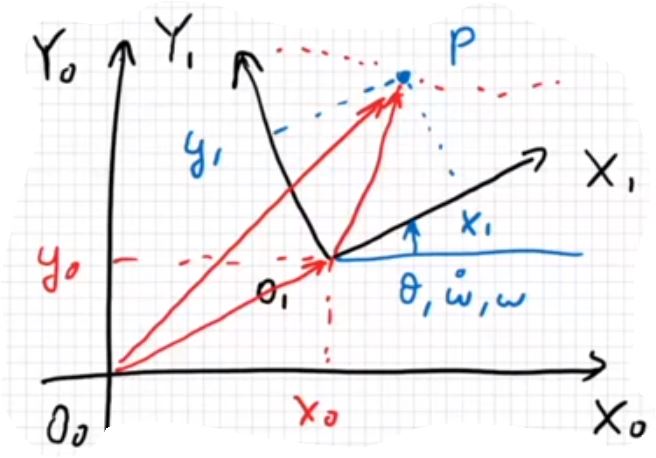 Y₀
Y₁
P
y₁
X₁
x₁
y₀
O₁
θ, ẇ, w
O₀
x₀
X₀